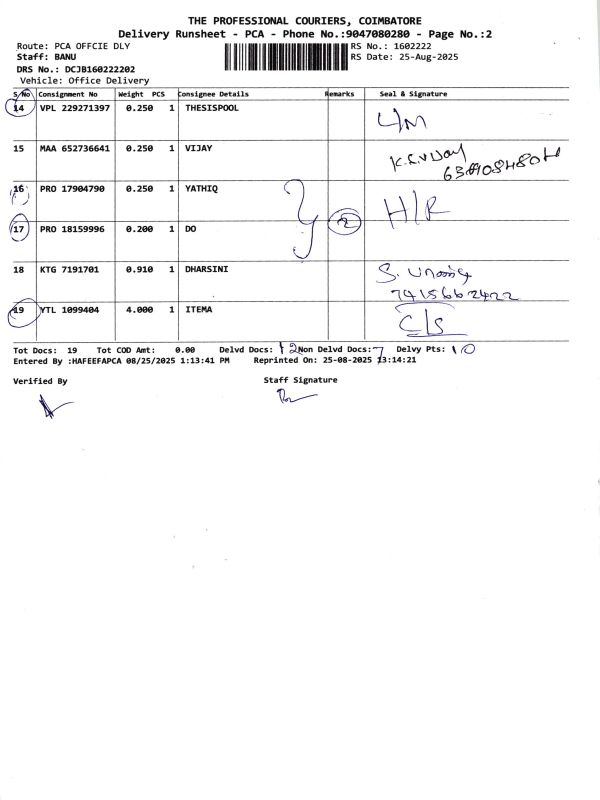 THE PROFESSIONAL COURIERS, COIMBATORE
Delivery Runsheet - PCA - Phone No.:9047080280 - Page No.:2
Route: PCA OFFCIE DLY RS No.: 1602222
Staff: BANU RS Date: 25-Aug-2025
DRS No.: DCJB160222202
Vehicle: Office Delivery
S/No Consignment No Weight PCS Consignee Details Remarks Seal & Signature
14 VPL 229271397 0.250 1 THESISPOOL
15 MAA 652736641 0.250 1 VIJAY
16 PRO 17904790 0.250 1 YATHIQ H/R
17 PRO 18159996 0.200 1 DO 2
18 KTG 7191701 0.910 1 DHARSINI S.
7415662422
19 YTL 1099404 4.000 1 ITEMA C/S
Tot Docs: 19 Tot COD Amt: 0.00 Delvd Docs: 12 Non Delvd Docs: 7 Delvy Pts: 10
Entered By :HAFEEFAPCA 08/25/2025 1:13:41 PM Reprinted On: 25-08-2025 13:14:21
Verified By Staff Signature